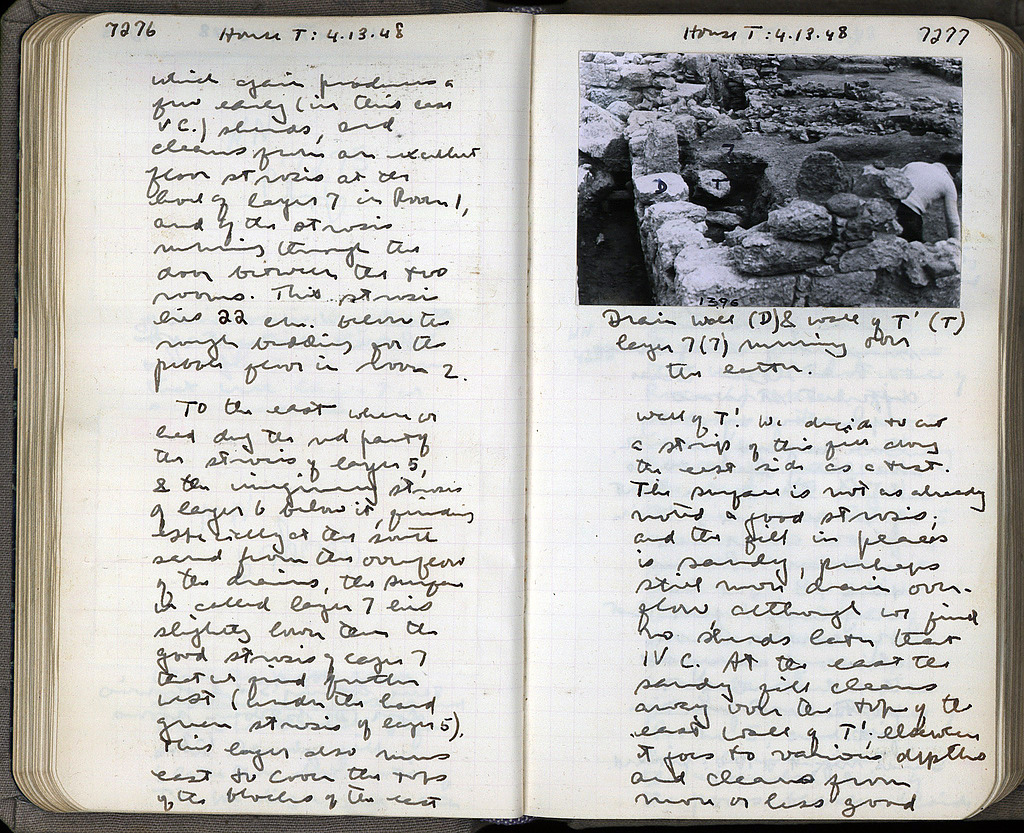 7276 House T: 4.13.48
which again produces a
few early (in this case
V C.) sherds, and
cleans from an excellent
floor strosis at the
level of layer 7 in Room 1,
and of the strosis
running through the
door between the two
rooms. This strosis
lies 22 cm. below the
rough bedding for the
pebble floor in Room 2.
To the east where we
had dug the red part of
the strosis of layer 5,
& the imaginary strosis
of layer 6 below it, finding
especially at the south
sand from the overflow
of the drains, the surface
we called layer 7 lies
slightly lower than the
good strosis of layer 7
that we find further
west (under the hard
green strosis of layer 5).
This layer also runs
east to cover the tops
of the blocks of the east
House T: 4.13.48 7277
7
D T
1396
Drain wall (D) & wall of T' (T)
layer 7 (7) running over
the latter.
wall of T'. We decide to cut
a strip of this fill along
the east side as a test.
The surface is not as already
noted a good strosis,
and the fill in places
is sandy, perhaps
still more drain over-
flow although we find
no sherds later than
IV C. At the east the
sandy fill cleans
away over the top of the
east wall of T'; elsewhere
it goes to various depths
and cleans from
more or less good